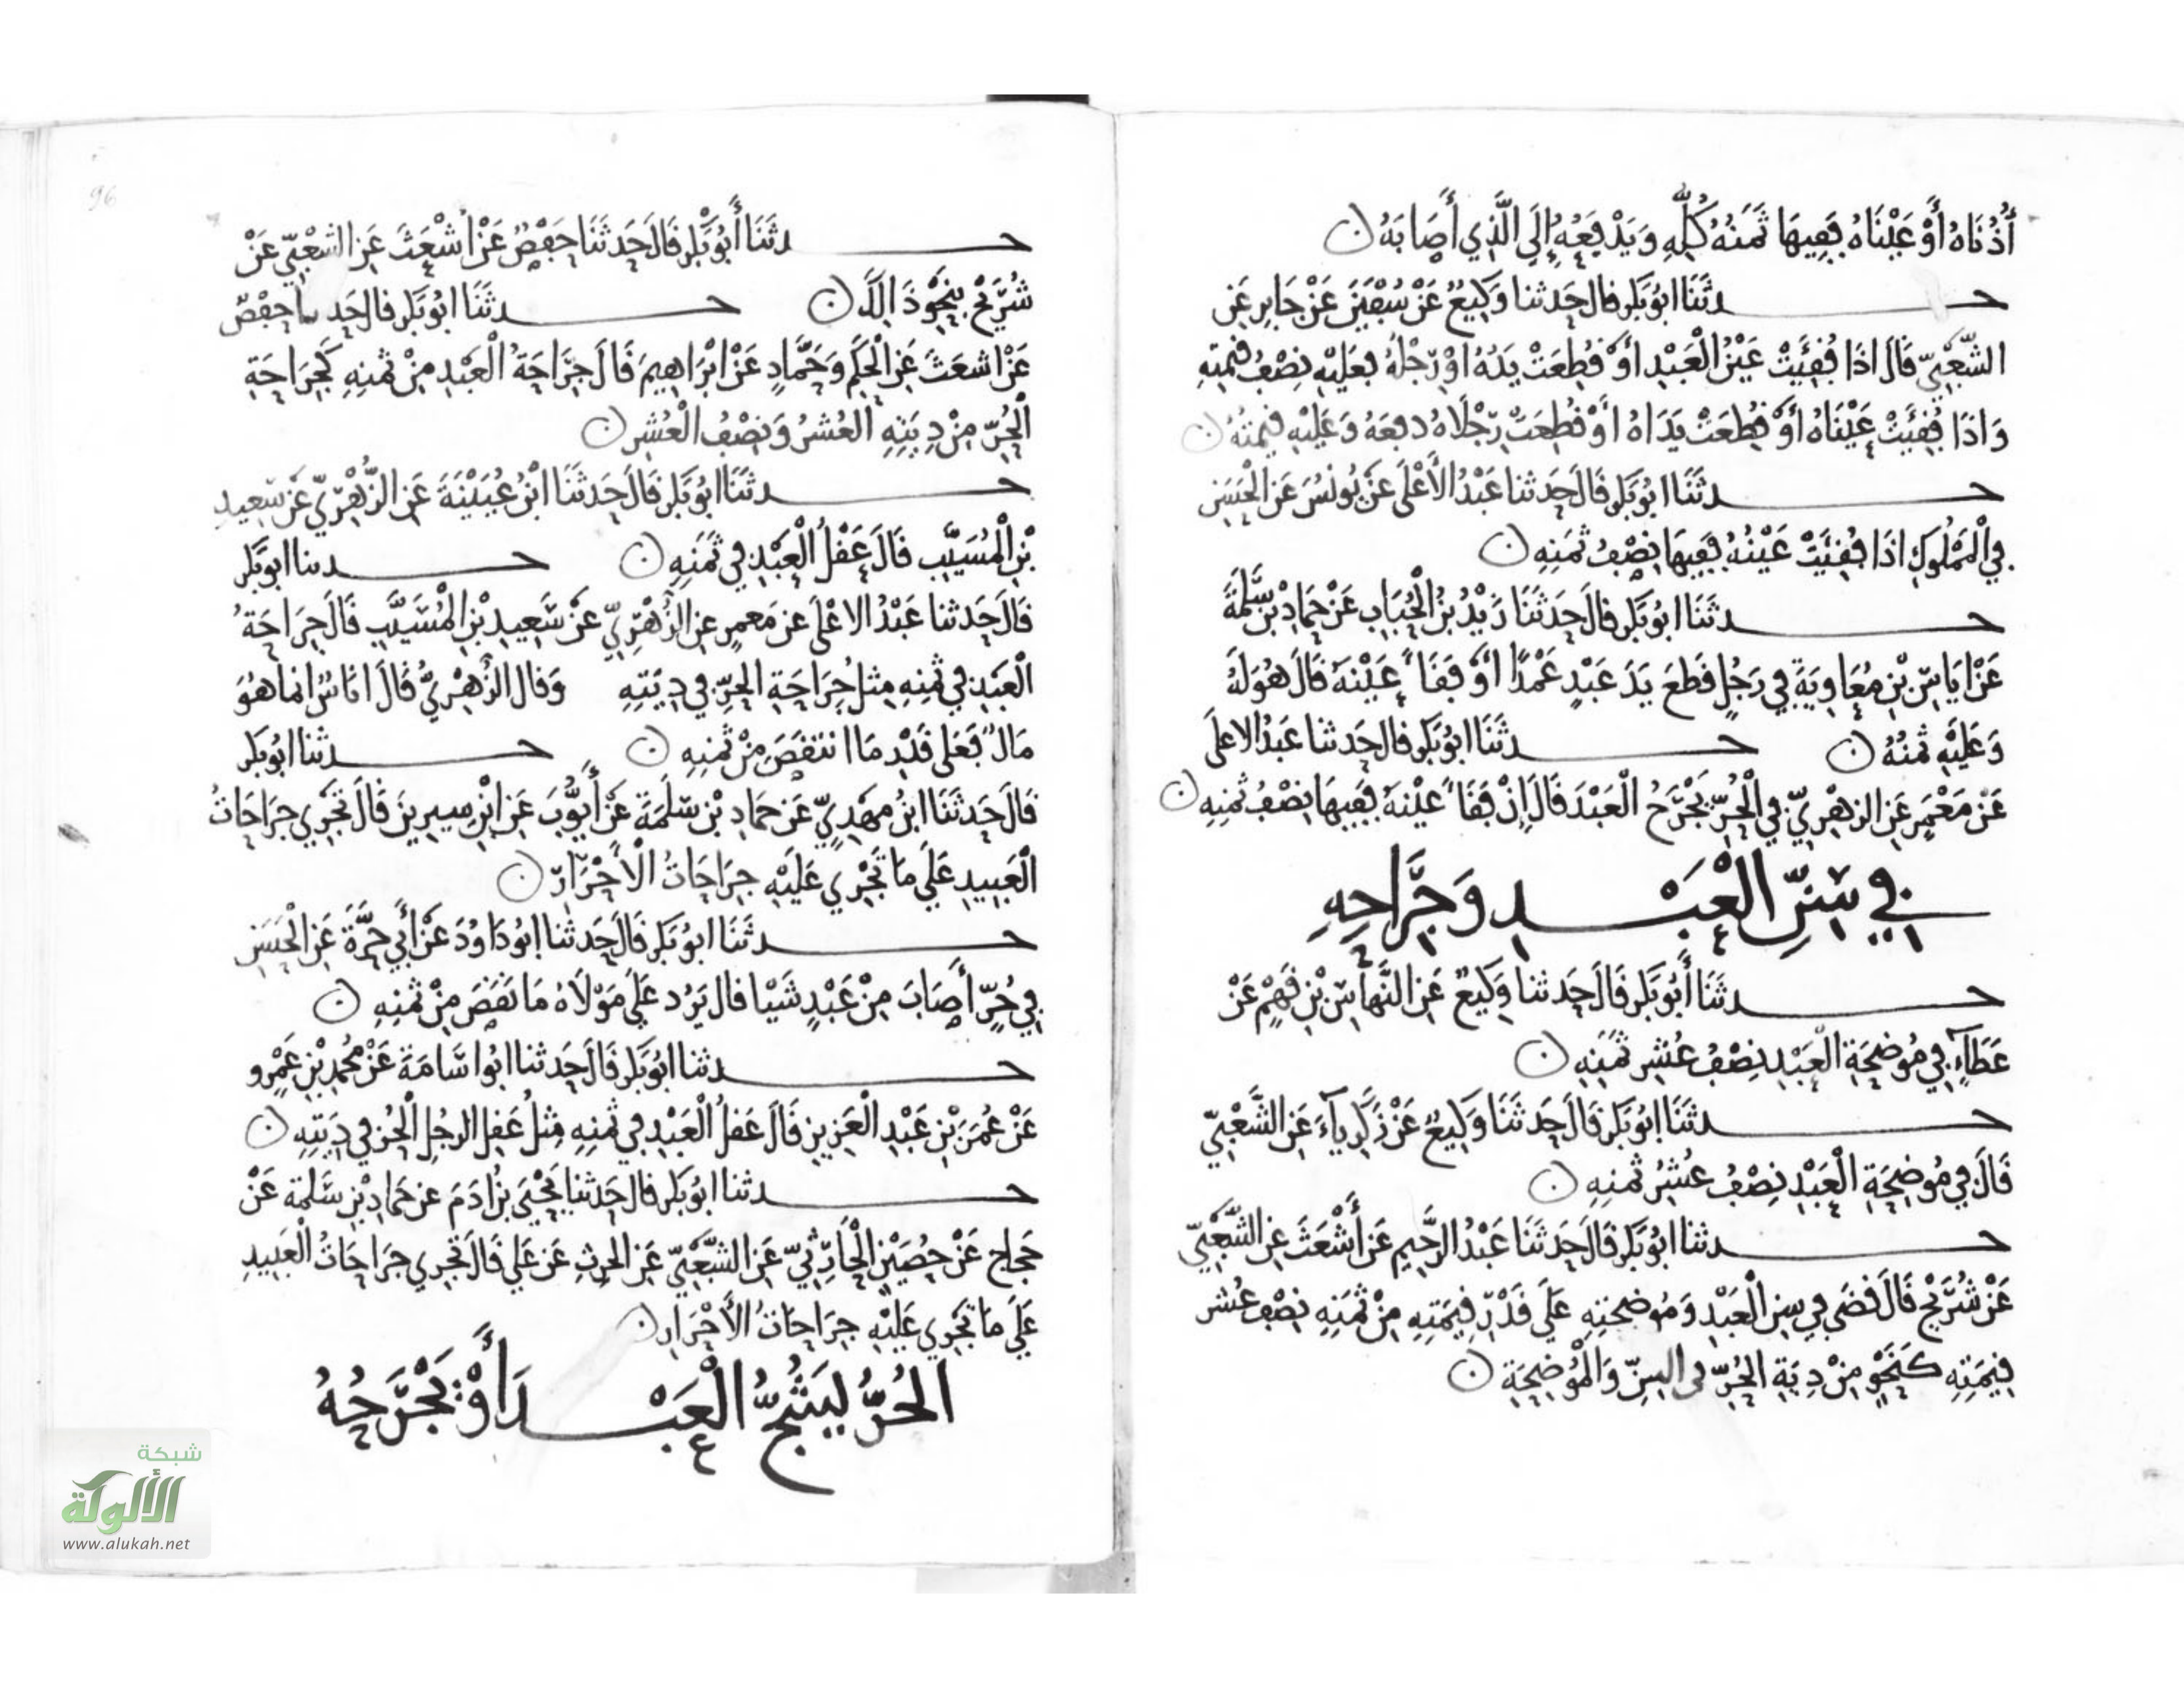 أُذُنَاهُ أَوْ عَيْنَاهُ فَفِيهَا ثَمَنُهُ كُلُّهِ وَيَدْفَعُهُ إِلَى الَّذِي أَصَابَهُ
حـــدثَنَا ابُو بَكر قال حَدثنا وَكِيعٌ عَنْ سُفْيَنَ عَنْ جَابِرٍ عَنِ
الشَّعْبِيّ قَالَ اذَا فُقِئَتْ عَيْنُ الْعَبْدِ أَوْ قُطِعَتْ يَدُهُ اوْ رِجْلُهُ فَعَلَيْهِ نِصْفُ قِيمَتِهِ
وَاذَا فُقِئَتْ عَيْنَاهُ أَوْ قُطِعَتْ يَدَاهُ أَوْ قُطِعَتْ رِجْلَاهُ دفعَهُ وَعَلَيْهِ قِيمَتُهُ
حـــدثَنَا ابُو بَكر قَالَ حَدثنا عَبْدُ الأَعْلَى عَنْ يُونُسَ عَنِ الْحَسَنِ
فِي الْمَمْلُوكِ اذَا فُقِئَتْ عَيْنُهُ فَفِيهَا نِصْفُ ثَمَنِهِ
حـــدثَنَا ابُو بَكر قالَ حَدثَنَا زَيْدُ بْنُ الْحُبَابِ عَنْ حَمادِ بْنِ سَلَمَةَ
عَنْ ايَاسِ بْنِ مُعَاوِيَةَ فِي رَجُلٍ قَطَعَ يَدَ عَبْدٍ عَمْدًا أَوْ فَقَأَ عَيْنَهُ قَالَ هُوَ لَهُ
وَعَلَيْهِ ثَمنُهُ حـــدثَنَا ابُو بَكر قال حَدثنا عَبْدُ الاعلَى
عَنْ مَعْمَرٍ عَنِ الزهْرِيِّ فِي الْحُرِّ يَجْرَحُ الْعَبْدَ قَالَ إِنْ فَقَأَ عَيْنَهُ فَفِيهَا نِصْفُ ثَمنِهِ
فِي سِنِّ الْعَبْـــدِ وَجِرَاحِهِ
حـــدثَنَا أَبُو بَكر قَالَ حَدثنا وَكِيعٌ عَنِ النَّهاسِ بْنِ قَهْمٍ عَنْ
عَطَاءٍ فِي مُوضِحَةِ الْعَبْدِ نِصْفُ عُشِرِ ثَمَنِهِ
حـــدثَنَا ابُو بَكر قَالَ حَدثَنَا وَكِيعٌ عَنْ زَكَرِيآءَ عَنِ الشَّعْبِيّ
قَالَ فِي مُوضِحَةِ الْعَبْدِ نِصْفُ عُشِرُ ثَمنِهِ
حـــدثنا ابُو بَكر قَالَ حَدثَنَا عَبْدُ الرَّحِيمِ عَنْ أَشْعَثَ عَنِ الشَّعْبِيّ
عَنْ شُرَيْحٍ قَالَ قَضَى فِي سِنِ الْعَبْدِ وَمُوضحتِهِ عَلَى قَدْرِ قِيمَتِهِ مِنْ ثَمَنِهِ نِصْف عُشر
قِيمَتِهِ كَنَحْوٍ مِنْ دِيَةِ الحُرِّ فى السِنِّ وَالْمُوضِحَةِ
حـــدثَنَا أَبُو بَكر قَالَ حَدثَنَا حَفْصٌ عَنْ أشْعَثَ عَنِ الشَّعْبِيّ عَنْ
شُرَيْحٍ بِنَحْوِ ذَالِكَ حـــدثَنَا ابُو بَكر قال حَدثنا حفصٌ
عَنْ اشعَثَ عَنِ الْحَكَمِ وَحَمَّادٍ عَنْ ابْرَاهِيمَ قَالَ جِرَاحَةُ الْعَبْدِ مِنْ ثَمنِهِ كَجِرَاحَةِ
الْحُرِّ مِنْ دِيَتِهِ الْعُشرُ وَنِصْفُ الْعُشِرِ
حـــدثَنَا ابُو بَكر قَالَ حَدثَنَا ابْنُ عُيَيْنَةَ عَنِ الزُّهْرِيّ عَنْ سَعِيدِ
بْنِ الْمُسَيَّبِ قَالَ عَقْلُ الْعَبْدِ فِي ثَمَنِهِ حـــدثنا ابو بَكر
قَالَ حَدثنا عَبْدُ الاعْلَى عَن مَعمرٍ عنِ الزُّهْرِيِّ عَنْ سَعِيدِ بْنِ الْمُسَيَّبِ قَالَ جِرَاحَةُ
الْعَبْدِ فِي ثَمنِهِ مِثل جِرَاحَةِ الحِرِّ فِي دِيَتِهِ وَقال الزُّهْرِيُّ قَالَ انَاسٌ انما هُوَ
مَالٌ فَعَلى قَدْرِ مَا انتقَصَ مِنْ ثَمنِهِ حـــدثنا ابُو بَكر
قَالَ حَدثَنَا ابْنُ مَهْدِيّ عَن حَمادِ بْنِ سَلَمَةَ عَنْ أَيُّوبَ عَنِ ابْنِ سِيرِينَ قَالَ تَجْرِي جِرَاحَاتُ
الْعَبِيدِ عَلَى مَا تَجْرِي عَلَيْهِ جِرَاحَاتُ الْأَحْرَارِ
حـــدثَنَا ابُو بَكر قَالَ حَدثنا ابُو دَاوُدَ عَنْ أَبِي حُرَّةَ عَنِ الْحَسَنِ
فِي حُرٍّ أَصَابَ مِنْ عَبْدٍ شَيْا قال يَرُد عَلَى مَوْلَاهُ مَا نَقَصَ مِنْ ثَمنِهِ
حـــدثنا ابُو بَكر قَالَ حَدثنا ابُو اسَامَةَ عَنْ مُحَمدِ بْنِ عَمْرٍو
عَنْ عُمَرَ بْنِ عَبْدِ الْعَزِيزِ قَالَ عَقلُ الْعَبْدِ فِي ثَمنِهِ مِثلُ عَقلِ الرجُلِ الْحُرِ فِي دِيَتِهِ
حـــدثنا ابُو بَكر قال حَدثنا يَحْيَى بْنُ ادَمَ عن حَمادِ بْنِ سَلمَة عَنْ
حَجاج عَنْ حُصَيْنٍ الْحَارِثِيّ عَنِ الشَّعْبِيّ عَنِ الحرِثِ عَنْ عَلي قَالَ تَجْرِي جِرَاحَاتُ الْعَبِيدِ
عَلَى مَا تَجْرِي عَلَيْهِ جِرَاحَاتُ الْأَحْرَارِ
الحُرُّ يَشُجُّ الْعَبْـــدَ أَوْ يَجْرَحُهُ
96
شبكة
الألوكة
www.alukah.net